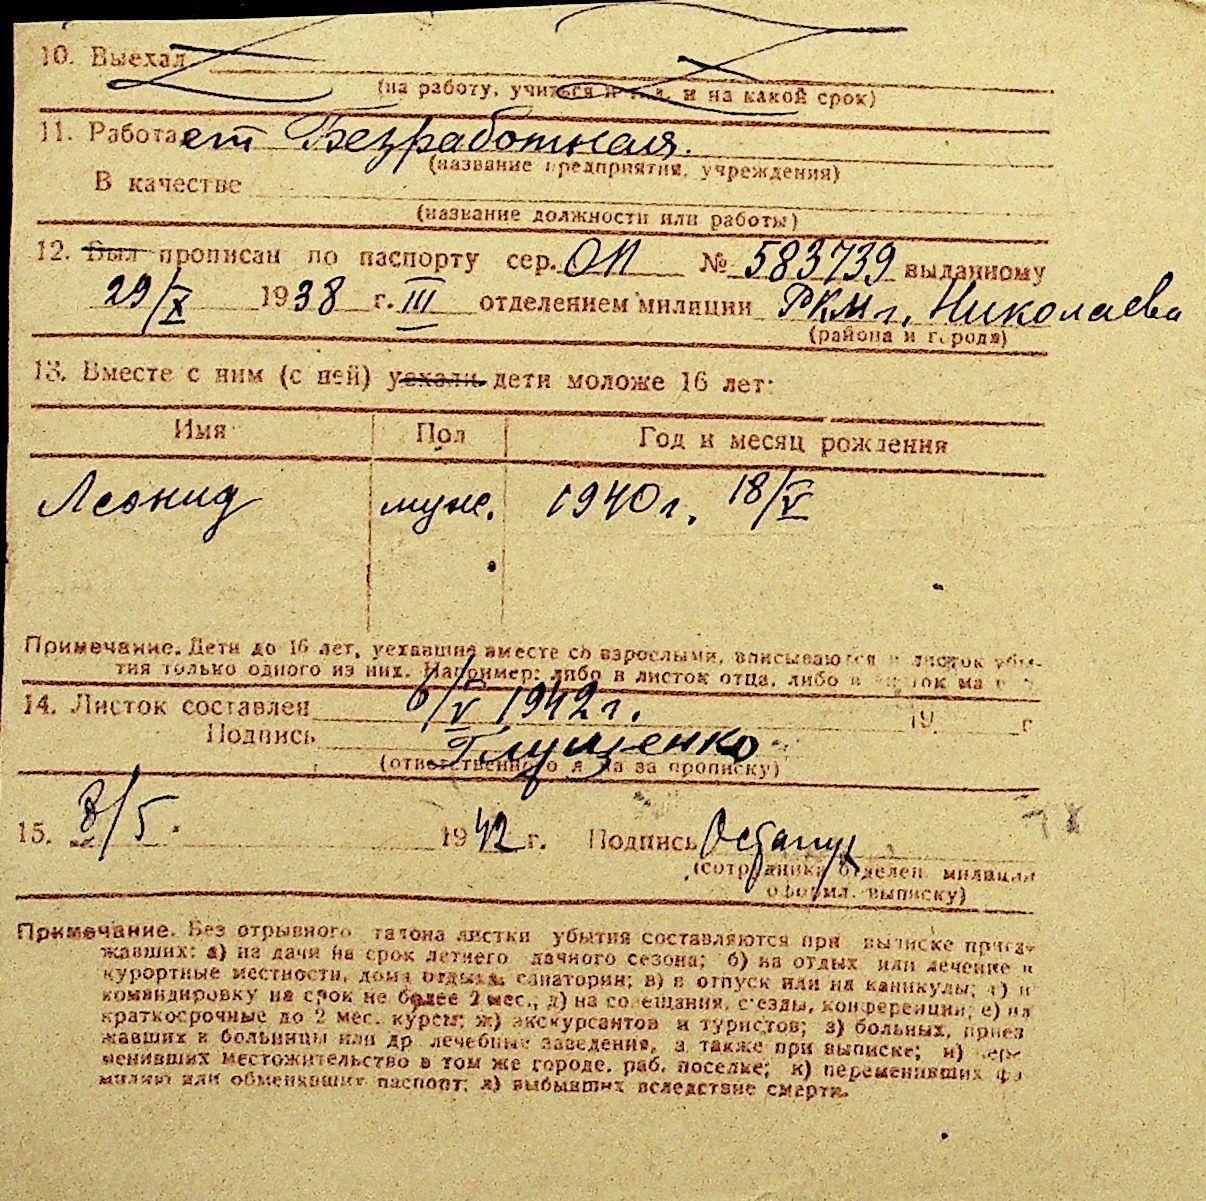 10. Выехал
(на работу, учиться и т.д. и на какой срок)
11. Работает Безработная.
(название предприятия, учреждения)
В качестве
(название должности или работы)
12. Был прописан по паспорту сер. ОП № 583739 выданному
29/X 1938 г. III отделением милиции РКМ г. Николаева
(района и города)
13. Вместе с ним (с ней) уехали дети моложе 16 лет:
Имя Пол Год и месяц рождения
Леонид муж. 1940 г. 18/V
Примечание. Дети до 16 лет, уехавшие вместе со взрослыми, вписываются в листок убы-
тия только одного из них. Например: либо в листок отца, либо в листок
14. Листок составлен 6/V 1942 г. 19 г
Подпись Глущенко
(ответственного за прописку)
15. 8/5. 1942 г. Подпись
(сотрудника отделен. милиции
оформл. выписку)
Примечание. Без отрывного талона листки убытия составляются при выписке приез-
жавших: а) на дачи на срок летнего дачного сезона; б) на отдых или лечение в
курортные местности, дома отдыха, санатории; в) в отпуск или на каникулы; г) в
командировку на срок не более 2 мес., д) на совещания, съезды, конференции; е) на
краткосрочные до 2 мес. курсы; ж) экскурсантов и туристов; з) больных, приез
жавших в больницы или др. лечебные заведения, а также при выписке; и) пере
менивших местожительство в том же городе, раб. поселке; к) переменивших фа
милию или обменявших паспорт; л) выбывших вследствие смерти.